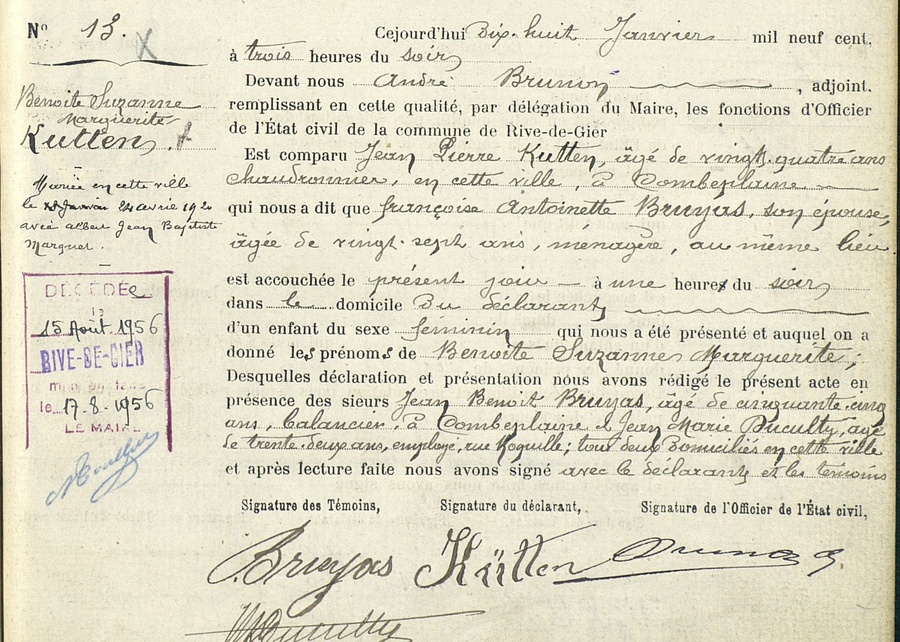 N° 13.
Benoite Suzanne
Marguerite
Kutten.
Mariée en cette ville
le 24 avril 1920
avec albert Jean Baptiste
Marquet.
DÉCÉDÉe
15 Août 1956
RIVE-DE-GIER
le 17-8-1956
LE MAIRE
Cejourd'hui Dix-huit Janvier mil neuf cent.
à trois heures du soir
Devant nous André Brunon, adjoint.
remplissant en cette qualité, par délégation du Maire, les fonctions d'Officier
de l'État civil de la commune de Rive-de-Gier
Est comparu Jean Pierre Kutten, âgé de vingt-quatre ans
chaudronnier, en cette ville, à Combeplaine
qui nous a dit que françoise Antoinette Bruyas, son épouse,
âgée de vingt-sept ans, ménagère, au même lieu
est accouchée le présent jour à une heure du soir
dans le domicile Du déclarant,
d'un enfant du sexe féminin qui nous a été présenté et auquel on a
donné les prénoms de Benoite Suzanne Marguerite;
Desquelles déclaration et présentation nous avons rédigé le présent acte en
présence des sieurs Jean Benoit Bruyas, âgé de cinquante-cinq
ans, balancier, à Combeplaine & Jean Marie Ducultty, âgé
de trente-deux ans, employé, rue; tous deux Domiciliés en cette ville
et après lecture faite nous avons signé avec le déclarant et les témoins
Signature des Témoins, Signature du déclarant, Signature de l'Officier de l'État civil,
Bruyas Kütten Brunon
Ducultty